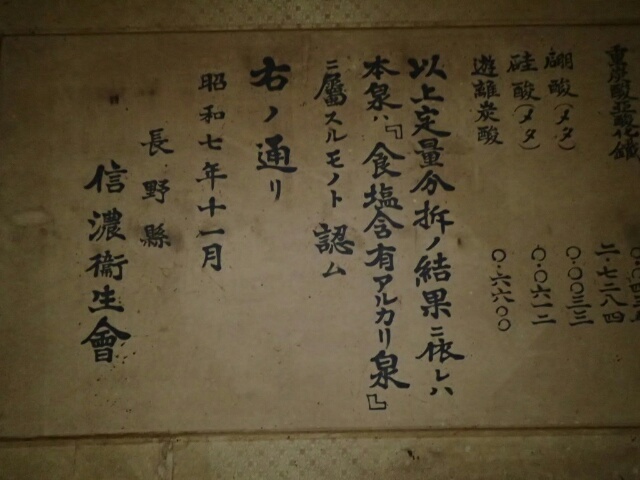 重炭酸亜酸化鐵
二.七二八四
硼酸(メタ) 〇.〇〇三三
硅酸(メタ) 〇.〇六一二
遊離炭酸 〇.六六〇〇
以上定量分拆ノ結果ニ依レハ
本泉ハ『食塩含有アルカリ泉』
ニ屬スルモノト認ム
右ノ通リ
昭和七年十一月
長野縣
信濃衞生會